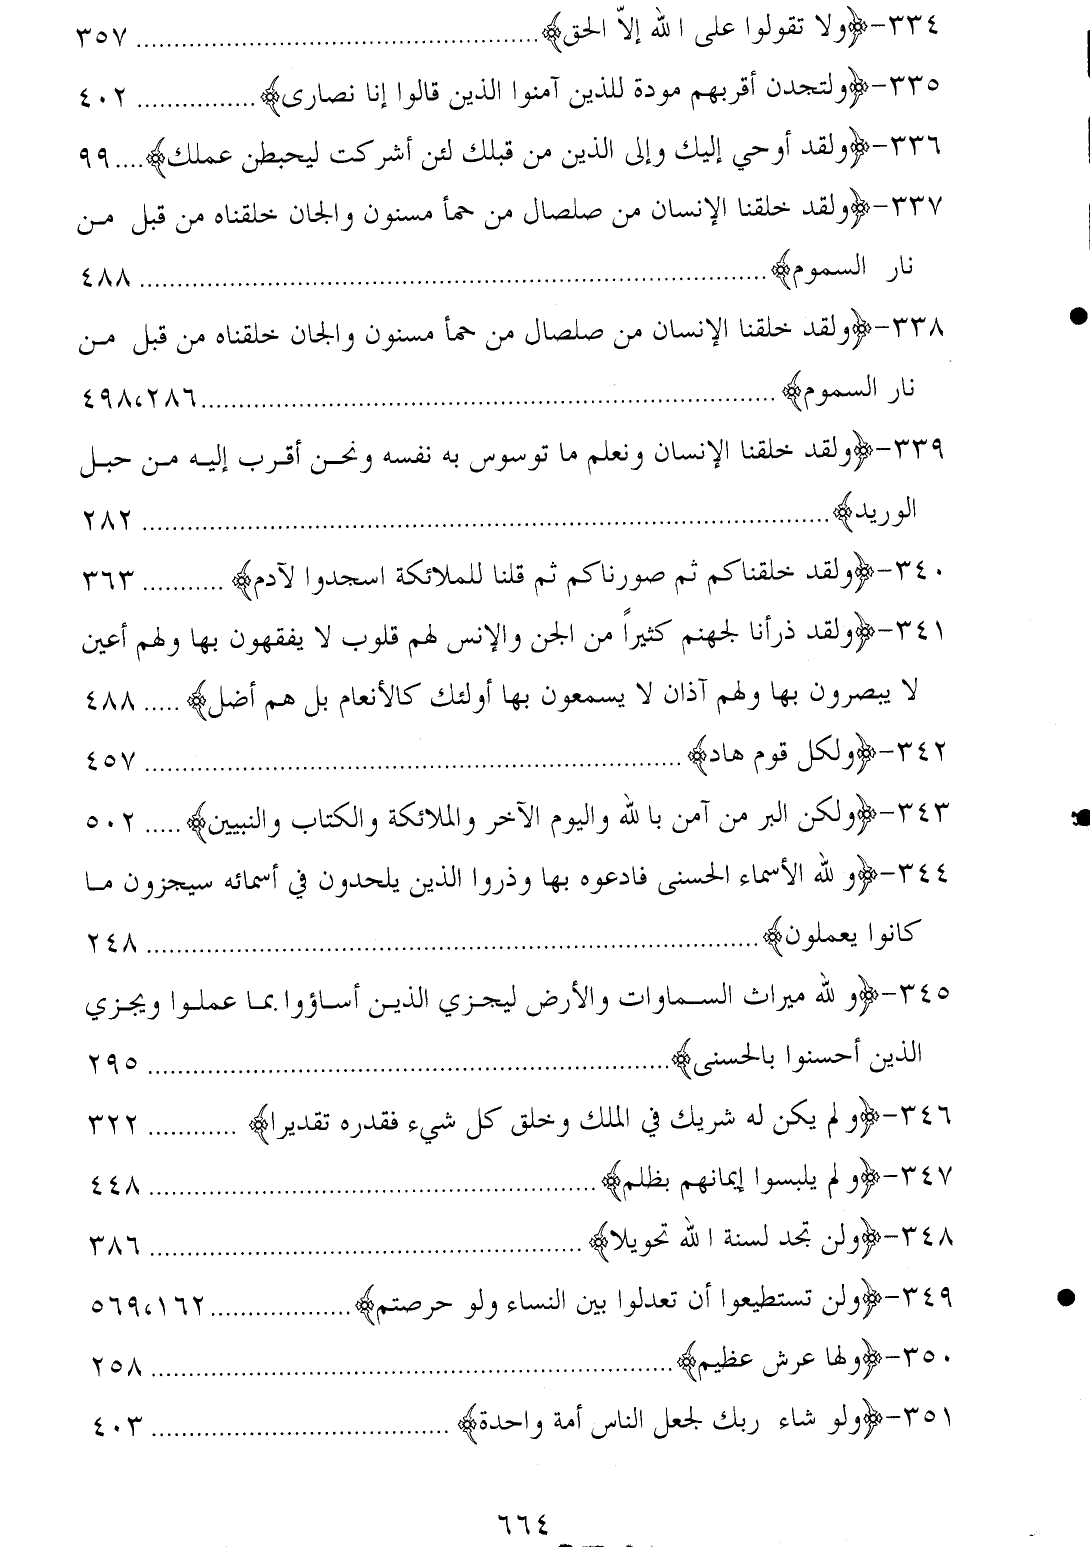 ٣٣٤-﴿ولا تقولوا على الله إلاّ الحق﴾ ........ ٣٥٧
٣٣٥-﴿ولتجدن أقربهم مودة للذين آمنوا الذين قالوا إنا نصارى﴾ ........ ٤٠٢
٣٣٦-﴿ولقد أوحي إليك وإلى الذين من قبلك لئن أشركت ليحبطن عملك﴾.... ٩٩
٣٣٧-﴿ولقد خلقنا الإنسان من صلصال من حمأ مسنون والجان خلقناه من قبل من
نار السموم﴾ ........ ٤٨٨
٣٣٨-﴿ولقد خلقنا الإنسان من صلصال من حمأ مسنون والجان خلقناه من قبل من
نار السموم﴾ ........ ٤٩٨،٢٨٦
٣٣٩-﴿ولقد خلقنا الإنسان ونعلم ما توسوس به نفسه ونحن أقرب إليه من حبل
الوريد﴾ ........ ٢٨٢
٣٤٠-﴿ولقد خلقناكم ثم صورناكم ثم قلنا للملائكة اسجدوا لآدم﴾ ........ ٣٦٣
٣٤١-﴿ولقد ذرأنا لجهنم كثيراً من الجن والإنس لهم قلوب لا يفقهون بها ولهم أعين
لا يبصرون بها ولهم آذان لا يسمعون بها أولئك كالأنعام بل هم أضل﴾ ..... ٤٨٨
٣٤٢-﴿ولكل قوم هاد﴾ ........ ٤٥٧
٣٤٣-﴿ولكن البر من آمن بالله واليوم الآخر والملائكة والكتاب والنبيين﴾ ..... ٥٠٢
٣٤٤-﴿ولله الأسماء الحسنى فادعوه بها وذروا الذين يلحدون في أسمائه سيجزون ما
كانوا يعملون﴾ ........ ٢٤٨
٣٤٥-﴿ولله ميراث السماوات والأرض ليجزي الذين أساؤوا بما عملوا ويجزي
الذين أحسنوا بالحسنى﴾ ........ ٢٩٥
٣٤٦-﴿ولم يكن له شريك في الملك وخلق كل شيء فقدره تقديرا﴾ ........ ٣٢٢
٣٤٧-﴿ولم يلبسوا إيمانهم بظلم﴾ ........ ٤٤٨
٣٤٨-﴿ولن تجد لسنة الله تحويلا﴾ ........ ٣٨٦
٣٤٩-﴿ولن تستطيعوا أن تعدلوا بين النساء ولو حرصتم﴾ ........ ٥٦٩،١٦٢
٣٥٠-﴿ولها عرش عظيم﴾ ........ ٢٥٨
٣٥١-﴿ولو شاء ربك لجعل الناس أمة واحدة﴾ ........ ٤٠٣
٦٦٤